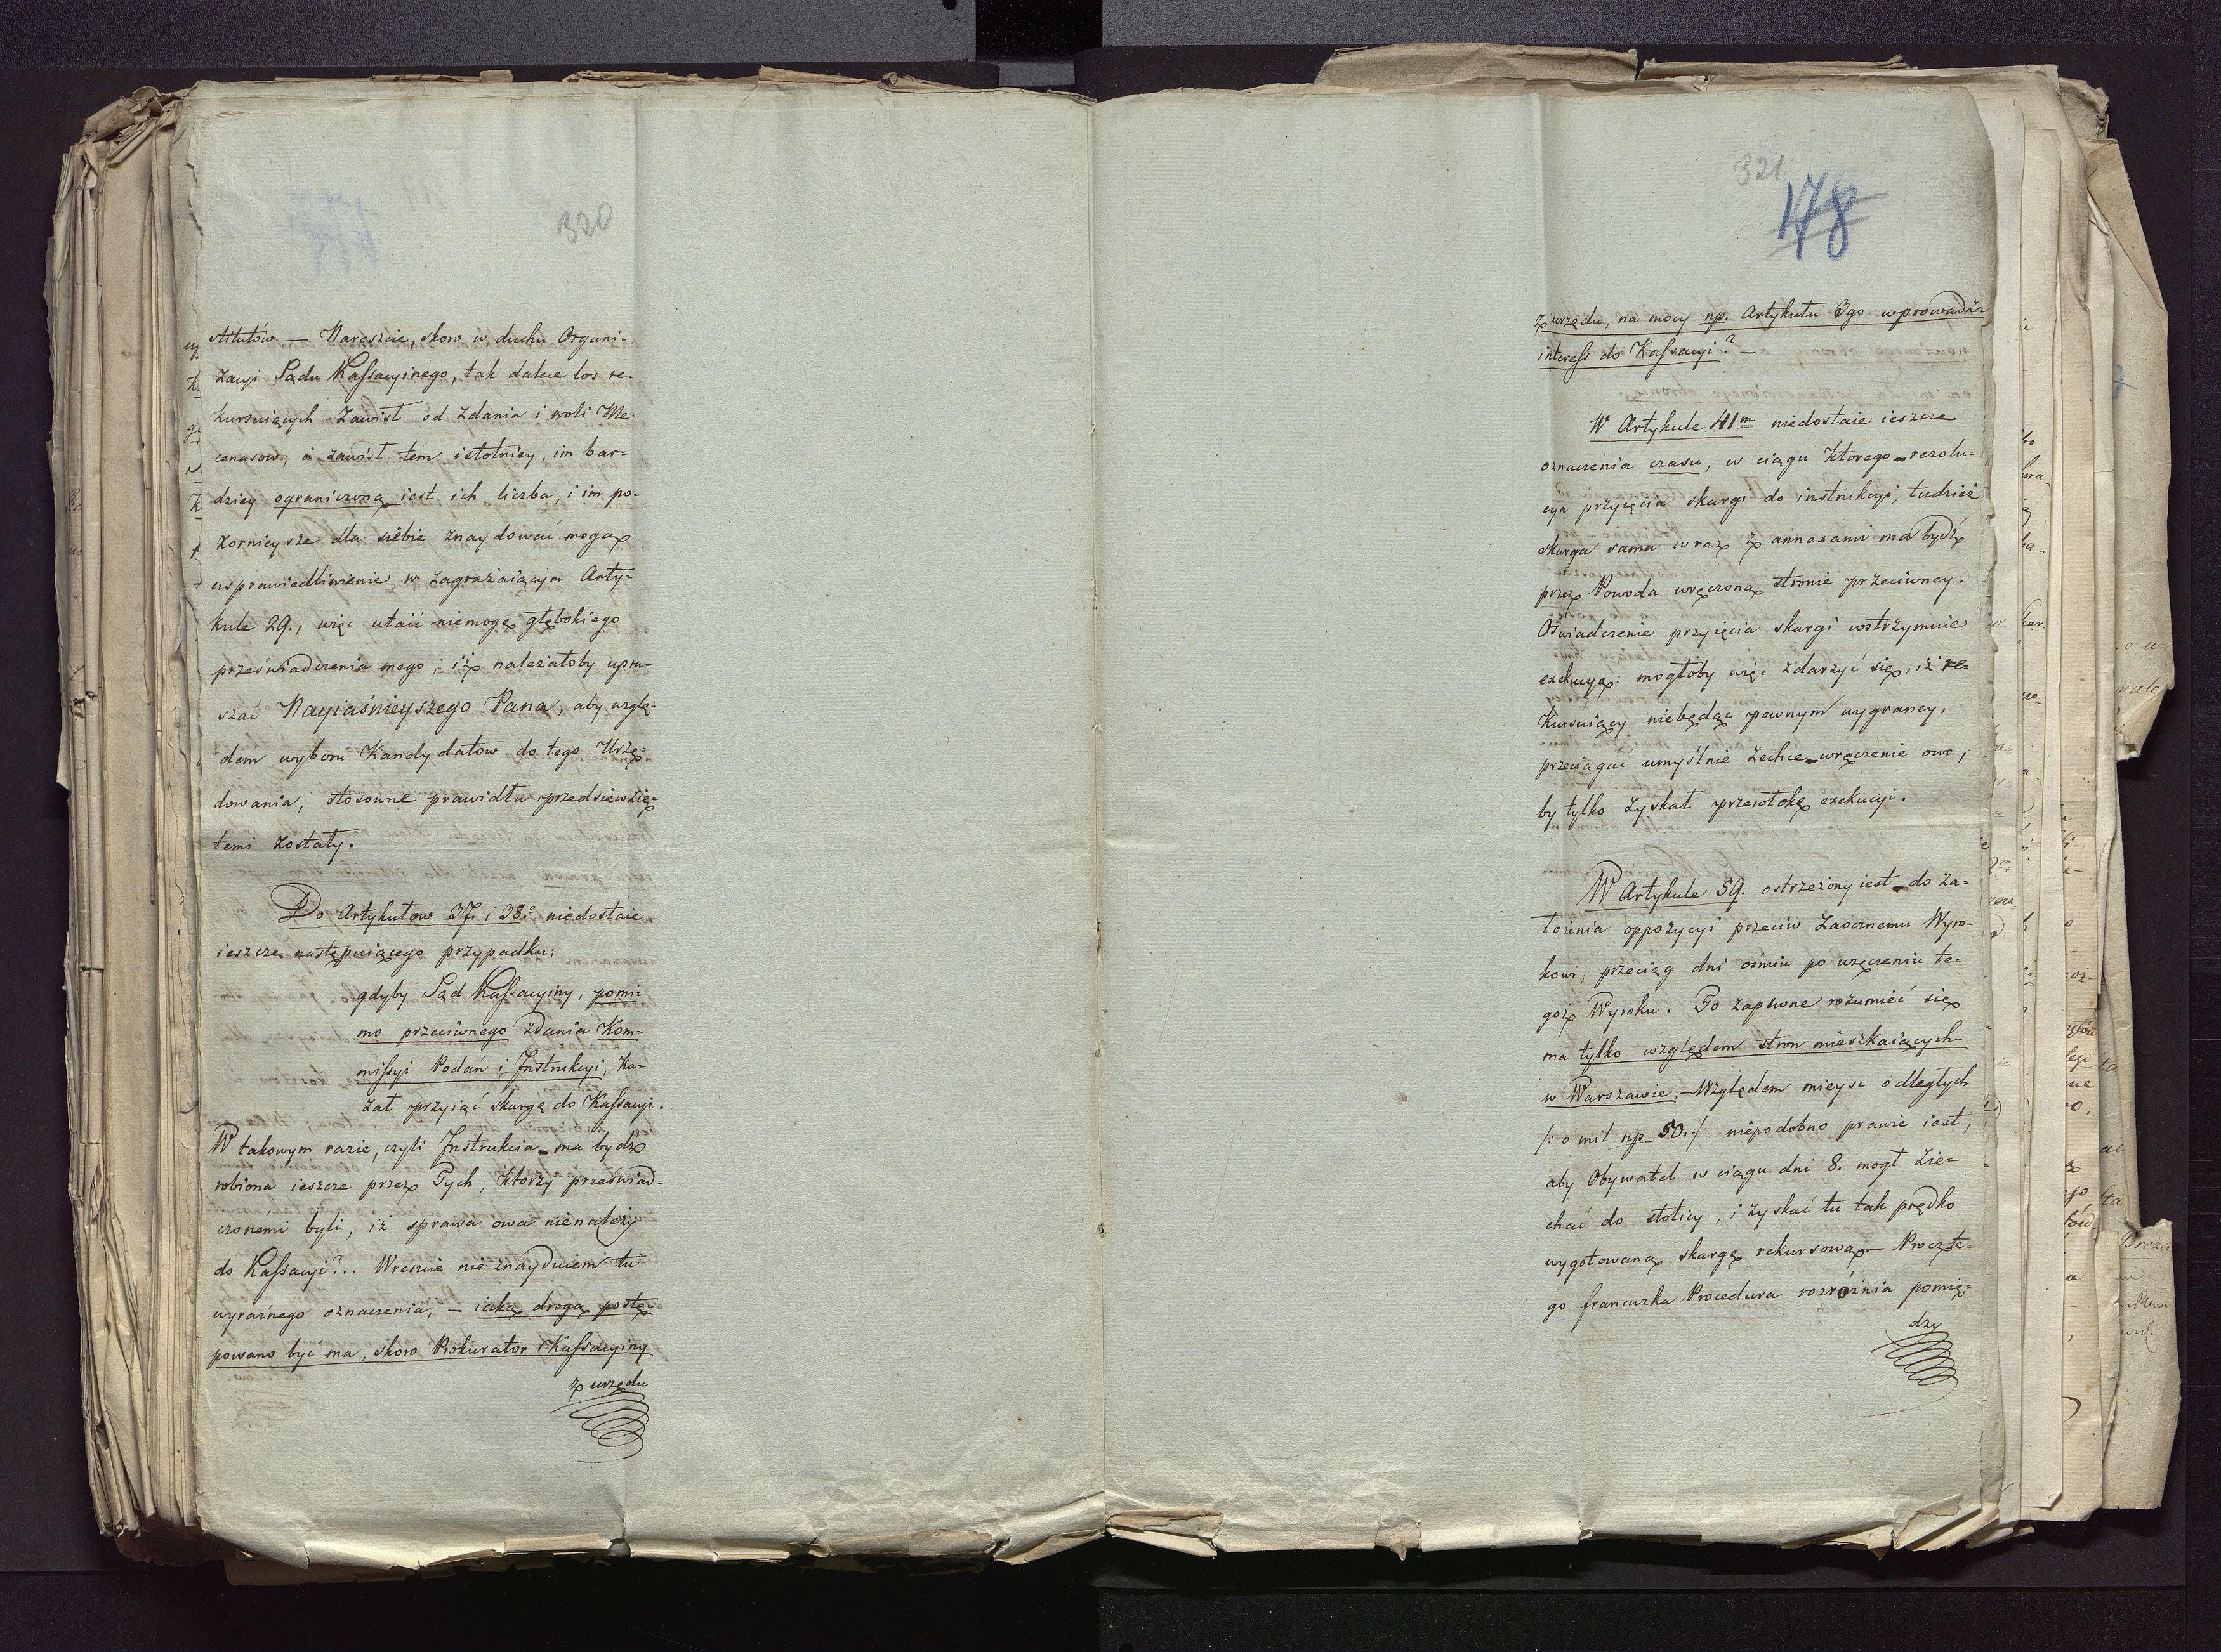 320
stitutów — Nareszcie, skoro w duchu Organi-
zacyi Sądu Kassacyinego, tak dalece los re-
kursuiących zawisł od zdania i woli Me-
cenasow, a zawisł tém istotniey, im bar-
dziey ograniczona iest ich liczba, i im po-
zornieysze dla siebie znaydować mogą
usprawiedliwienie w zagrażaiącym Arty-
kule 29., więc utaić niemogę głębokiego
przeświadczenia mego, iż należałoby upra-
szać Nayiaśnieyszego Pana, aby wzglę-
dem wyboru Kandydatow do tego Urzę-
dowania, stosowne prawidła przedsiewzię-
temi zostały.
Do Artykułow 37. i 38. niedostaie
ieszcze następuiącego przypadku:
gdyby Sąd Kassacyiny, pomi-
mo przeciwnego zdania Kom-
missyi Podań i Instrukcyi, ka-
zał przyiąć skargę do Kassacyi.
W takowym razie, czyli Instrukcia ma bydź
robiona ieszcze przez Tych, ktorzy przeświad-
czonemi byli, iż sprawa owa nienależy
do Kassacyi?.. Wreszcie nie znayduiem tu
wyraźnego oznaczenia, — iaką drogą postę-
powano być ma, skoro Prokurator Kassacyiny
z urzędu
321
178
z urzędu, na mocy np. Artykułu 3go wprowadza
interess do Kassacyi? —
W Artykule 41m niedostaie ieszcze
oznaczenia czasu, w ciągu ktorego rezolu-
cya przyięcia skargi do instrukcyi, tudzież
skarga sama wraz z annexami ma bydź
przez Powoda wręczona stronie przeciwney.
Oświadczenie przyięcia skargi wstrzymuie
exekucyą: mogłoby więc zdarzyć się, iż re-
kursuiący niebędąc pewnym wygraney,
przeciągać umyślnie zechce wręczenie owo,
by tylko zyskał przewłokę exekucyi.
W Artykule 59. ostrzeżony iest do za-
łożenia oppozycyi przeciw Zaocznemu Wyro-
kowi, przeciąg dni ośmiu po wręczeniu te-
goż Wyroku. To zapewne rozumieć się
ma tylko względem stron mieszkaiących
w Warszawie. — Względem mieysc odległych
/: o mil np 50. :/ niepodobno prawie iest,
aby Obywatel w ciągu dni 8. mogł zie-
chać do stolicy, i zyskać tu tak prędko
wygotowaną skargę rekursową — Procz te-
go francuzka Procedura rozróżnia pomię-
dzy